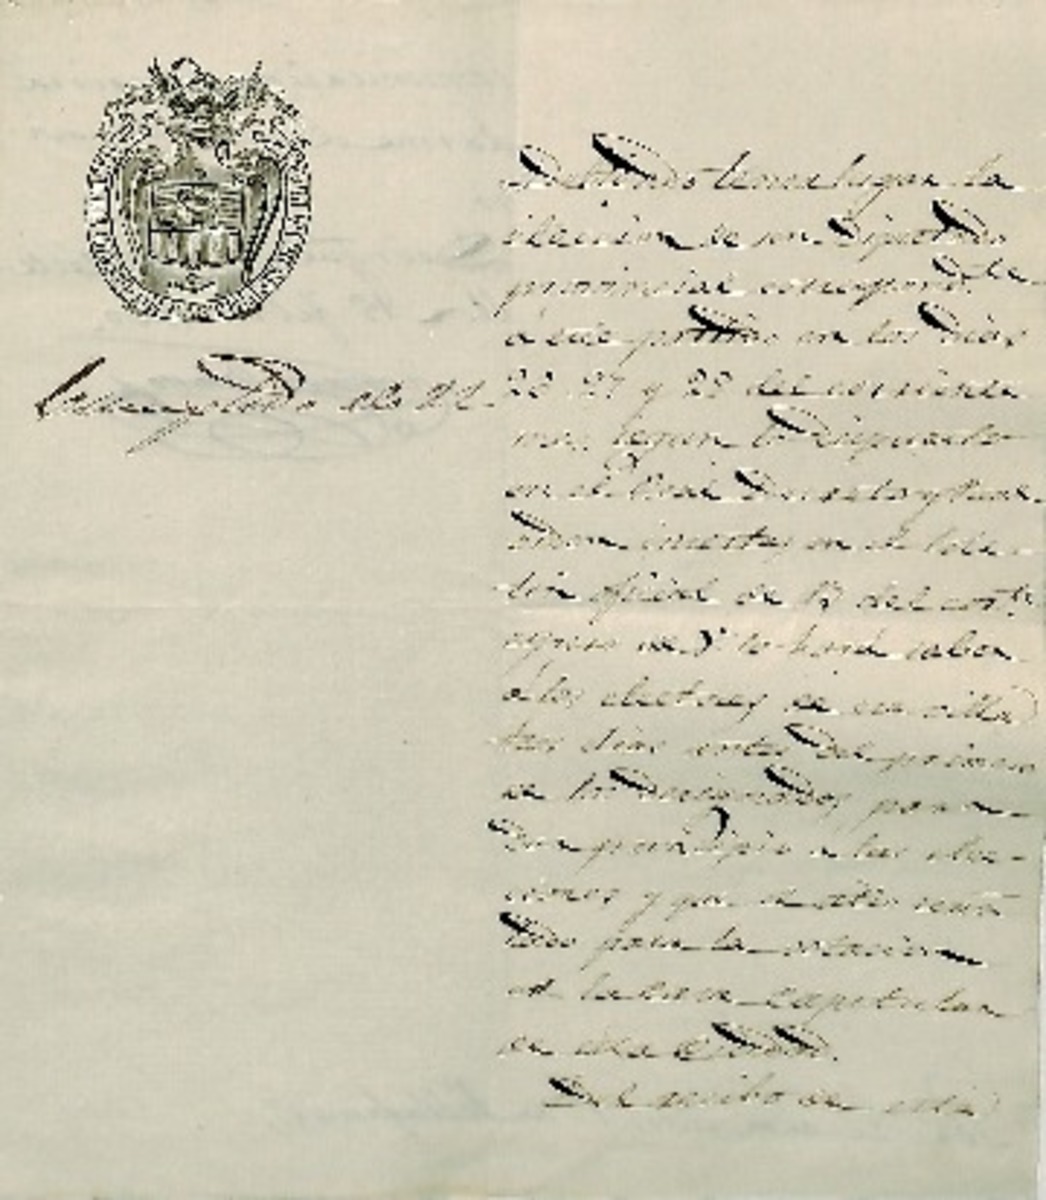 Cumplido el 22
Debiendo tener lugar la
eleccion de un Diputado
provincial correspond.te
á este partido en los dias
27 y 28 del corriente
mes, segun lo dispuesto
en el Real Decreto y Real
orden insertos en el Bole-
tin oficial de del corr.te
espero de V. lo hará saber
á los electores de esa villa
tres dias antes del primero
de los designados, para
dar principio a las elec-
ciones y que el sitio seña
lado para la votacion
es la Casa Capitular
de esta Ciudad.
Del recibo de esta